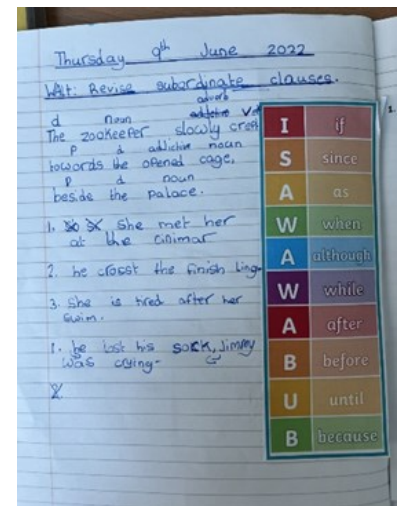 Thursday 9th June 2022
Walt: Revise subordinate clauses.
adverb
d noun adjective
The zookeeper slowly crept
p d adjictive noun
towards the opened cage,
p d noun
beside the palace.
1. She met her
at the cinimar
2. he crosst the finish ling
3. She is tired after her
swim.
1. he lost his sock, Jimmy
was crying.
2
I if
S since
A as
W when
A although
W while
A after
B before
U until
B because
1.